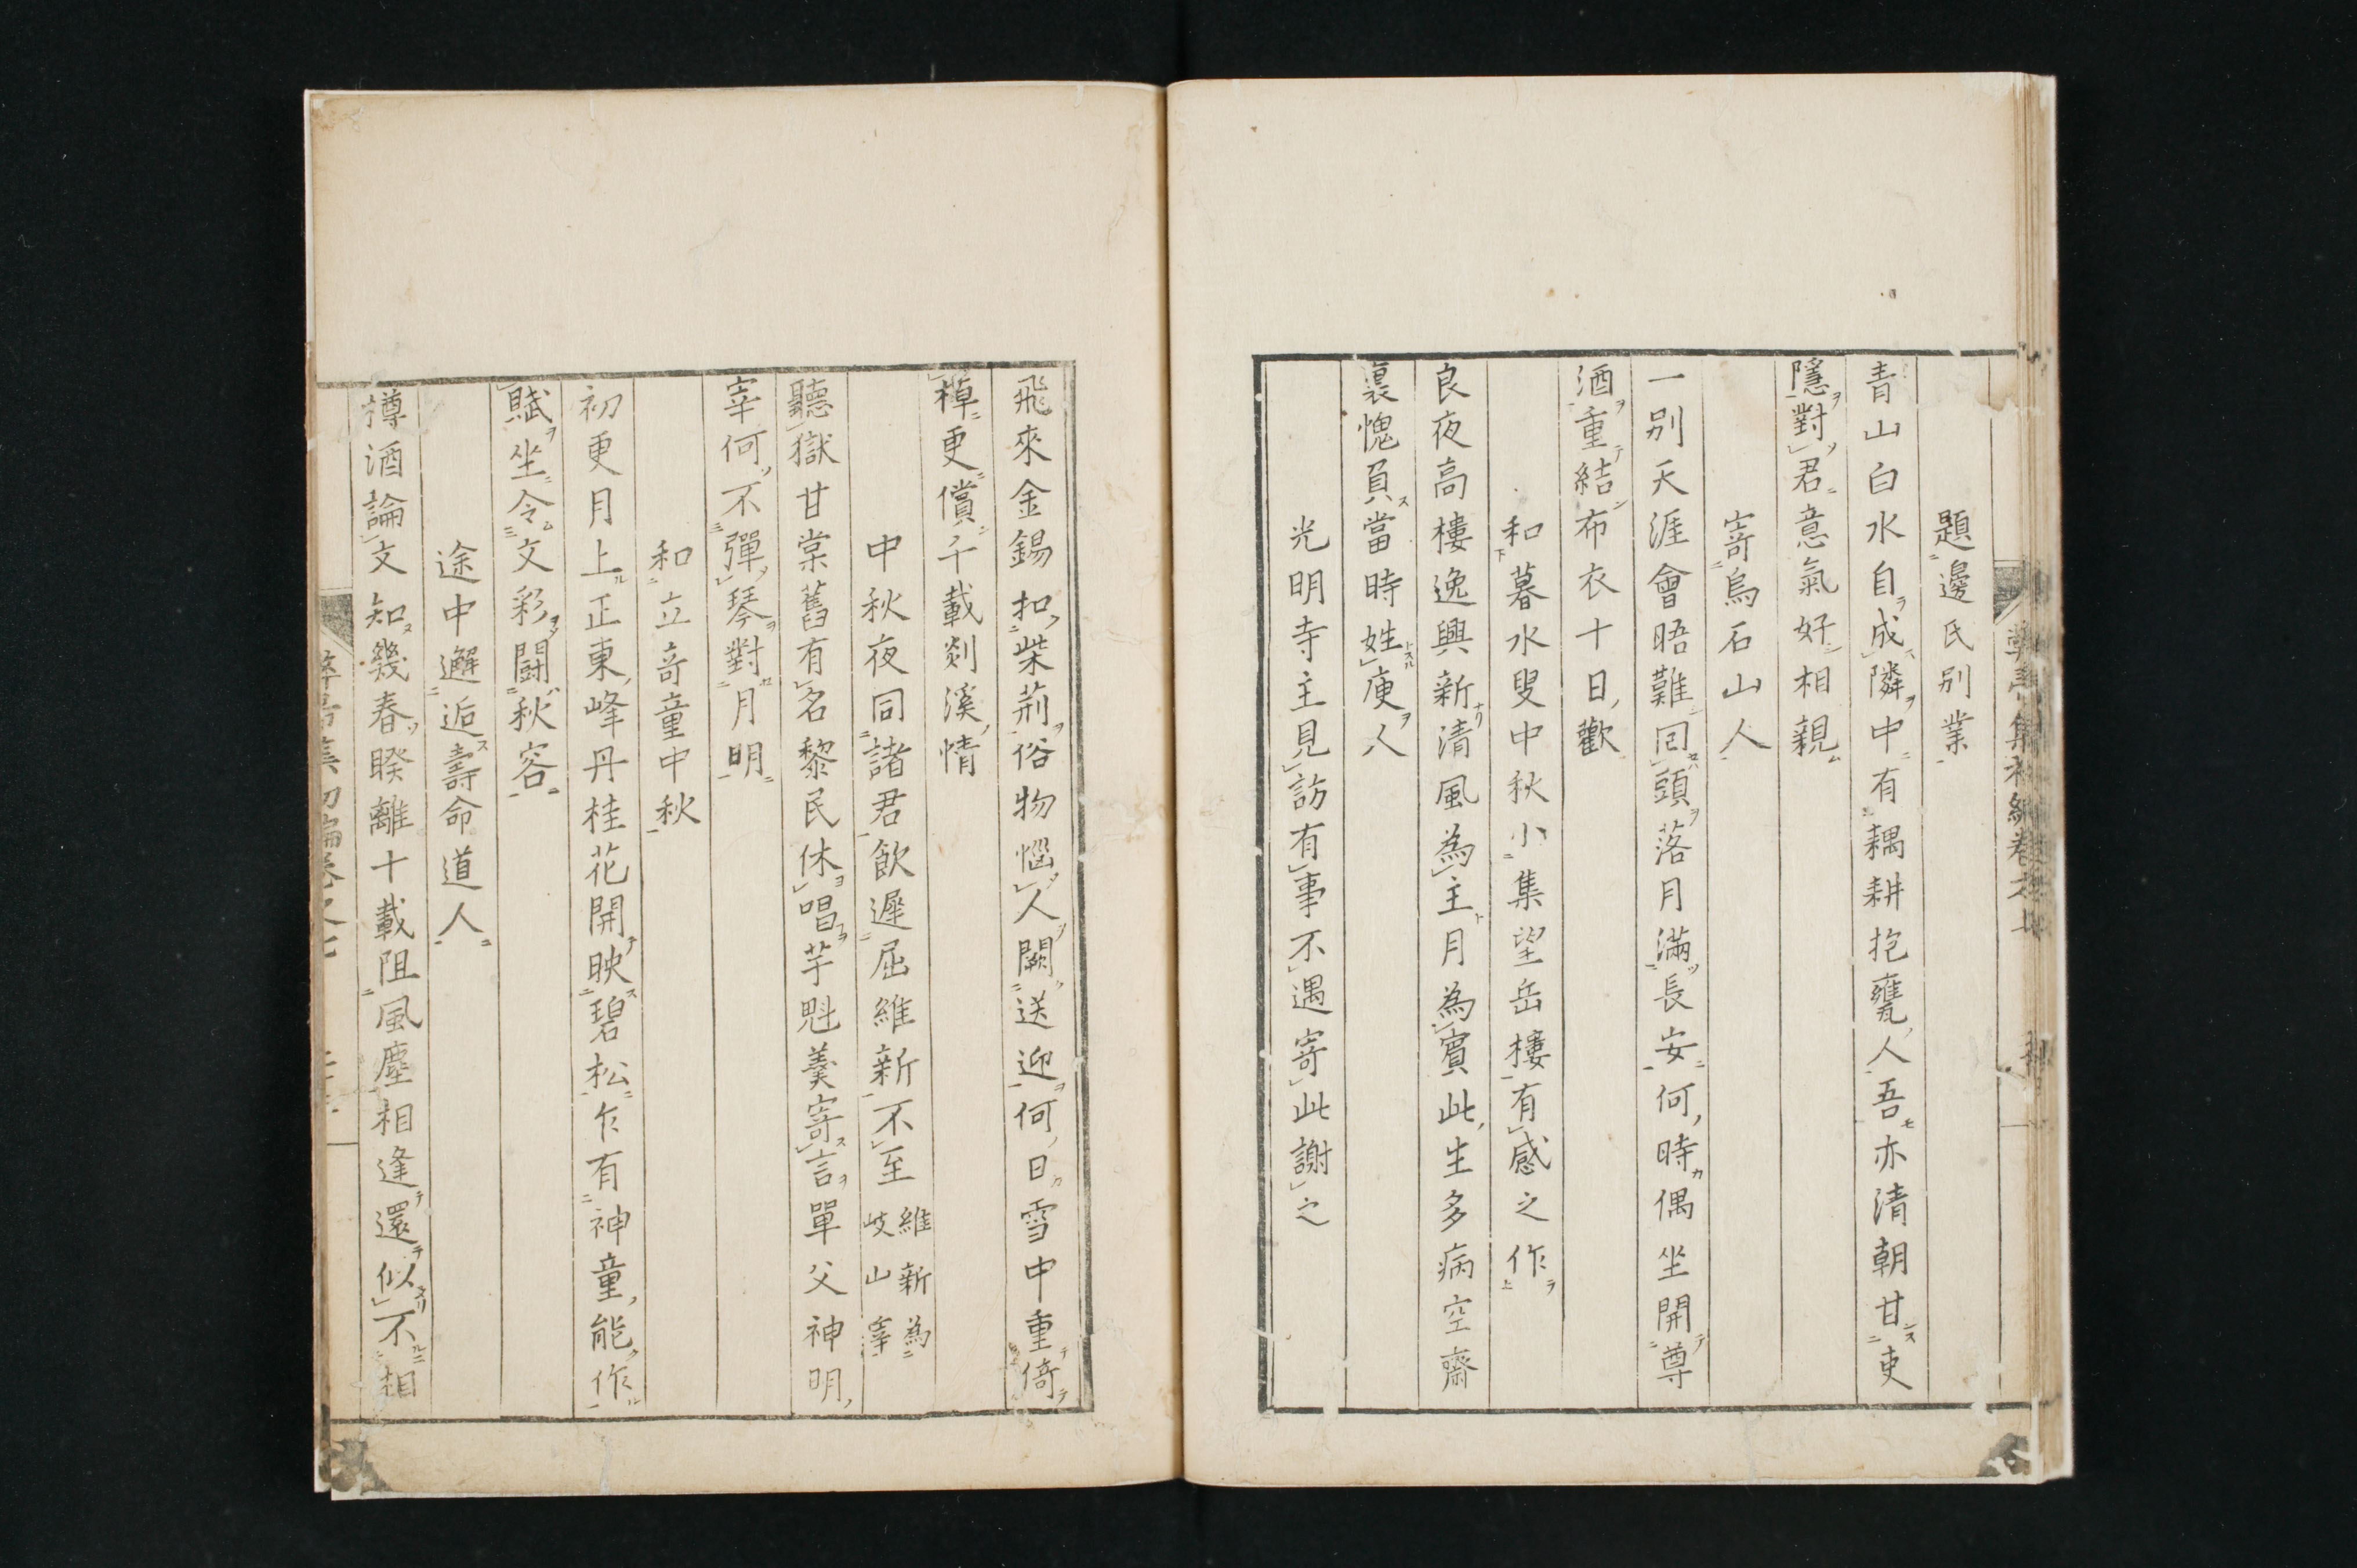 題邊氏別業
青山白水自成隣中有耦耕抱甕人吾亦清朝甘吏
隱對君意氣好相親
寄烏石山人
一別天涯會晤難回頭落月滿長安何時偶坐開尊
酒重結布衣十日歡
和暮水叟中秋小集望岳樓有感之作
良夜高樓逸興新清風為主月為賓此生多病空齋
裏愧負當時姓庾人
光明寺主見訪有事不遇寄此謝之
飛來金錫扣柴荊俗物惱人闕送迎何日雪中重倚
棹更償千載剡溪情
中秋夜同諸君飲遲屈維新不至維新為岐山宰
聽獄甘棠舊有名黎民休唱芋魁羹寄言單父神明
宰何不彈琴對月明
和立奇童中秋
初更月上正東峰丹桂花開映碧松乍有神童能作
賦坐令文彩鬪秋容
途中邂逅壽命道人
樽酒論文知幾春睽離十載阻風塵相逢還似不相